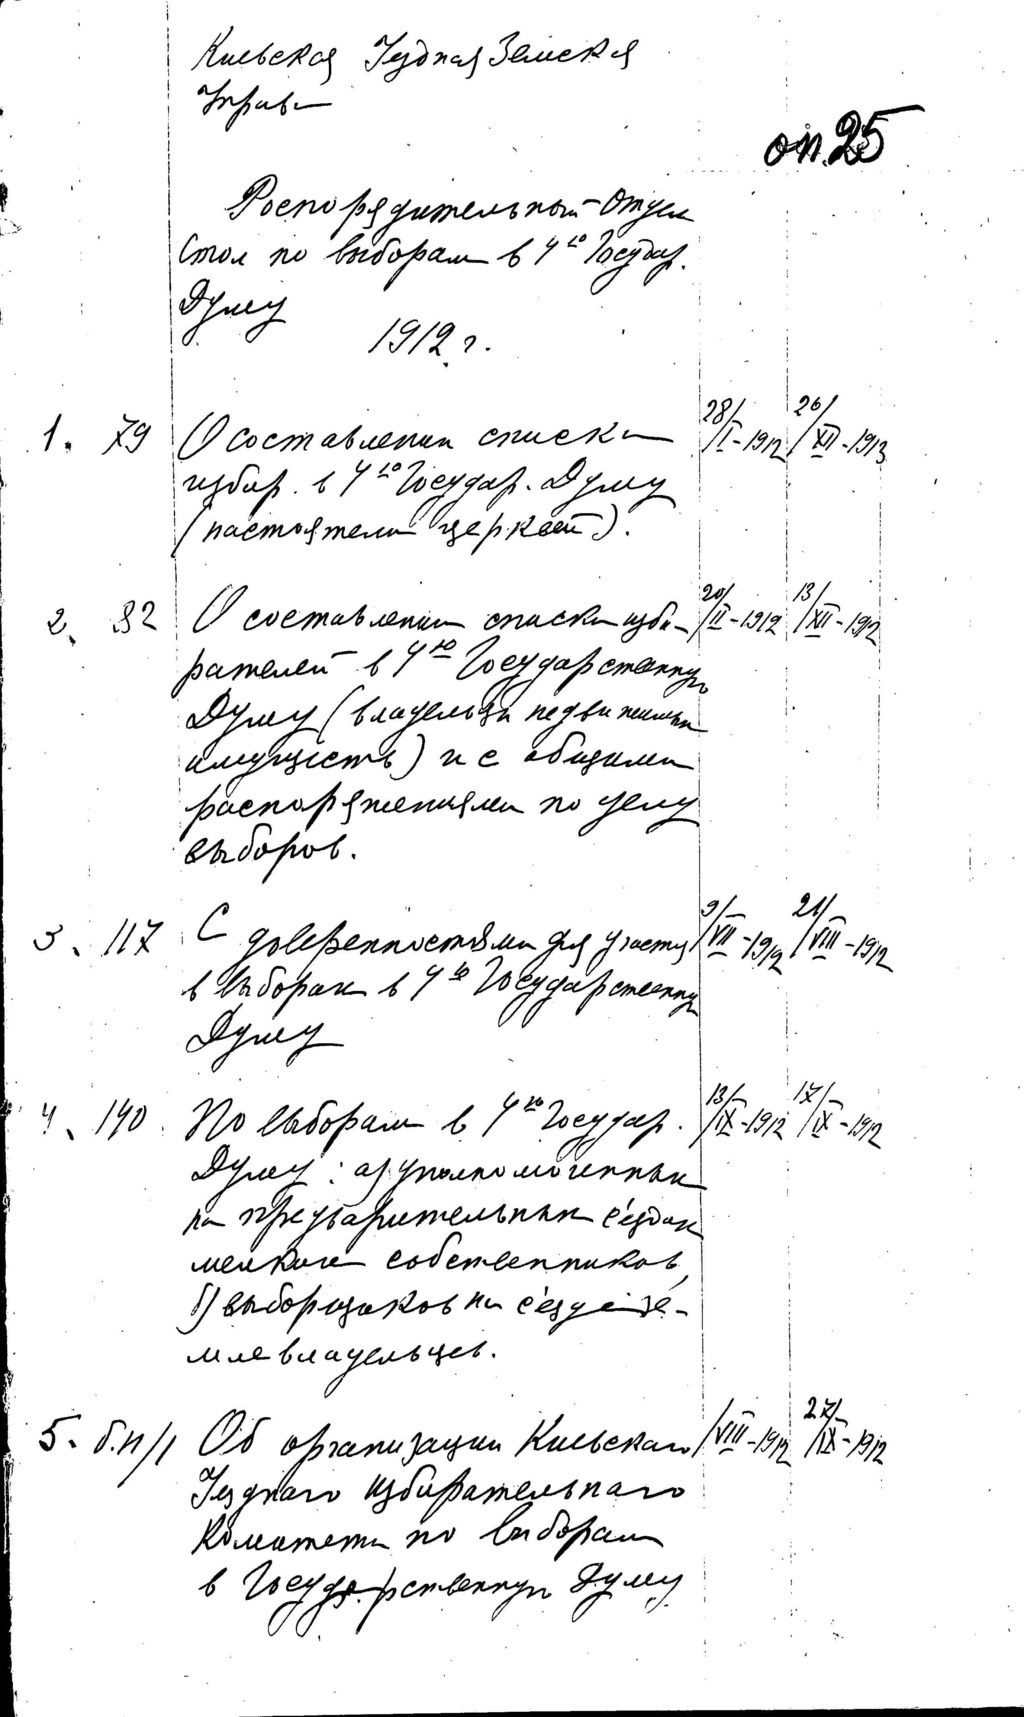 Киевская Уездная Земская
Управа
оп. 25
Распорядительный Отдел
Стол по выборам в 4ую Государ.
Думу
1912 г.
1. 79 О составлении списка 28/I-1912 26/XII-1913
избир. в 4ую Государ. Думу
(настоятели церквей).
2. 82 О составлении списка изби- 20/II-1912 13/XII-1912
рателей в 4ую Государственную
Думу (владельцы недвижимых
имуществ) и с общими
распоряжениями по делу
выборов.
3. 117 С доверенностями для участия 9/VII-1912 21/VIII-1912
в выборах в 4ую Государственную
Думу
4. 140. По выборам в 4ую Государ. 13/IX-1912 17/IX-1912
Думу: а) уполномоченных
на предварительных с'ездах
мелких собственников,
б) выборщиков на с'езде зе-
млевладельцев.
5. б.н/1 Об организации Киевского /VIII-1912 27/IX-1912
Уездного Избирательного
Комитета по выборам
в Государственную Думу